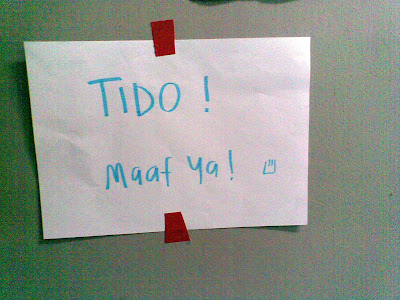 TIDO !
Maaf Ya !